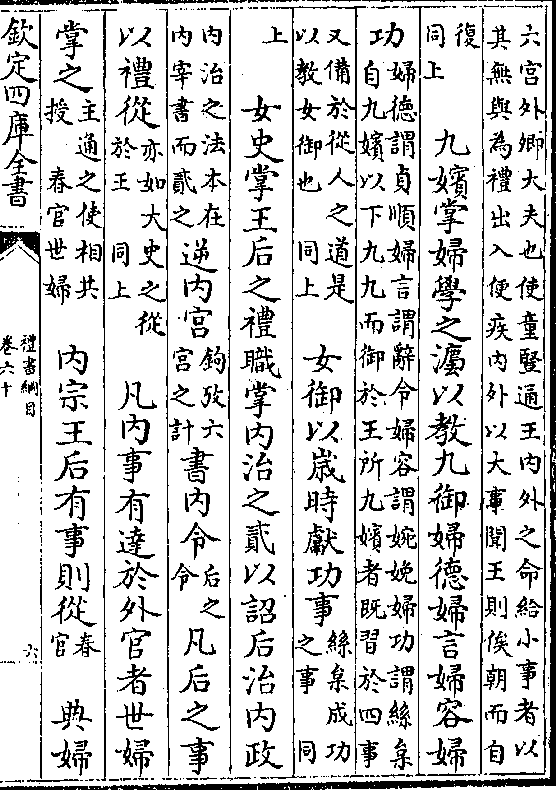 六宫外卿大夫也使童豎通王内外之命給小事者以
其無與為禮出入便疾内外以大事聞王則俟朝而自
復同上　九嬪掌婦學之灋以教九御婦德婦言婦容婦
功
婦德謂貞順婦言謂辭令婦容謂婉娩婦功謂絲枲
自九嬪以下九九而御於王所九嬪者既習於四事
又備於從人之道是
以教女御也　同上
女御以歲時獻功事
絲枲成功
之事　同
上　女史掌王后之禮職掌内治之貳以詔后治内政
内治之法本在
内宰書而貳之
逆内宫
鉤攷六
宫之計
書内令
后之
令
凡后之事
以禮從
亦如大史之從
於王　同上
凡内事有達於外官者世婦
掌之
主通之使相共
授　春官世婦
内宗王后有事則從
春
官
典婦
欽定四庫全書
禮書綱目
卷六十
六